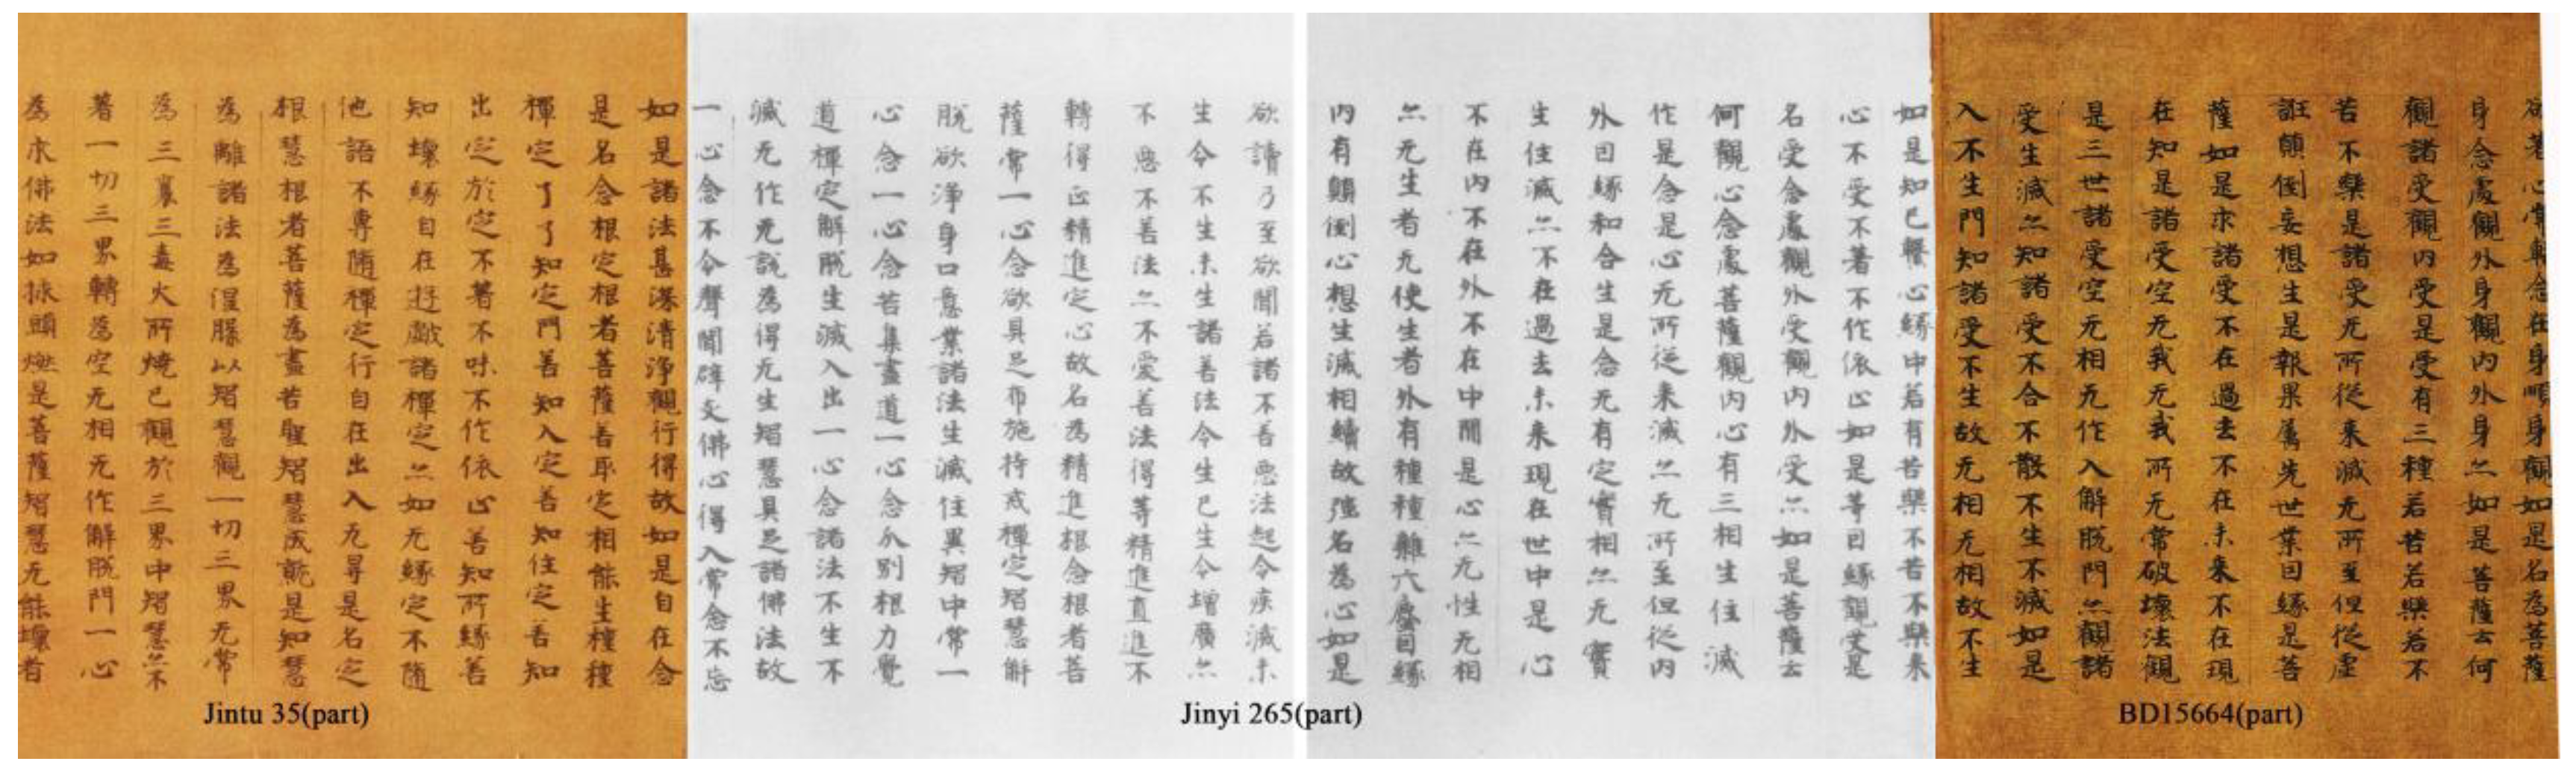 欲著心常轉念在身順身觀如是名為菩薩
身念處觀外身觀內外身亦如是菩薩云何
觀諸受觀內受是受有三種若苦若樂若不
苦不樂是諸受无所從來滅无所至但從虛
誑顛倒妄想生是報果屬先世業因緣是菩
薩如是求諸受不在過去不在未來不在現
在知是諸受空无我无我所无常破壞法觀
是三世諸受空无相无作入解脫門亦觀諸
受生滅亦知諸受不合不散不生不滅如是
入不生門知諸受不生故无相无相故不生
BD15664(part)
如是知已繫心緣中若有苦樂不苦不樂來
心不受不著不作依止如是等因緣觀受是
名受念處觀外受觀內外受亦如是菩薩云
何觀心念處菩薩觀內心有三相生住滅
作是念是心无所從來滅亦无所至但從內
外因緣和合生是念无有定實相亦无實
生住滅亦不在過去未來現在世中是心
不在內不在外不在中間是心亦无性无相
亦无生者无使生者外有種種雜六塵因緣
內有顛倒心想生滅相續故強名為心如是
欲讀乃至欲聞若諸不善惡法起令疾滅未
生令不生未生諸善法令生已生令增廣亦
不惡不善法亦不愛善法得等精進直進不
轉得正精進定心故名為精進根念根者菩
薩常一心念欲具足布施持戒禪定智慧解
脫欲淨身口意業諸法生滅住異智中常一
心念一心念苦集盡道一心念分別根力覺
道禪定解脫生滅入出一心念諸法不生不
滅无作无說為得无生智慧具足諸佛法故
一心念不令聲聞辟支佛心得入常念不忘
Jinyi 265(part)
如是諸法甚深清淨觀行得故如是自在念
是名念根定根者菩薩善取定相能生種種
禪定了了知定門善知入定善知住定善知
出定於定不著不味不作依止善知所緣善
知壞緣自在遊戲諸禪定亦知无緣定不隨
他語不專隨禪定行自在出入无㝵是名定
根慧根者菩薩為盡苦聖智慧成就是知慧
為離諸法為涅槃以智慧觀一切三界无常
為三衰三毒火所燒已觀於三界中智慧亦不
著一切三界轉為空无相无作解脫門一心
為求佛法如救頭燃是菩薩智慧无能壞者
Jintu 35(part)